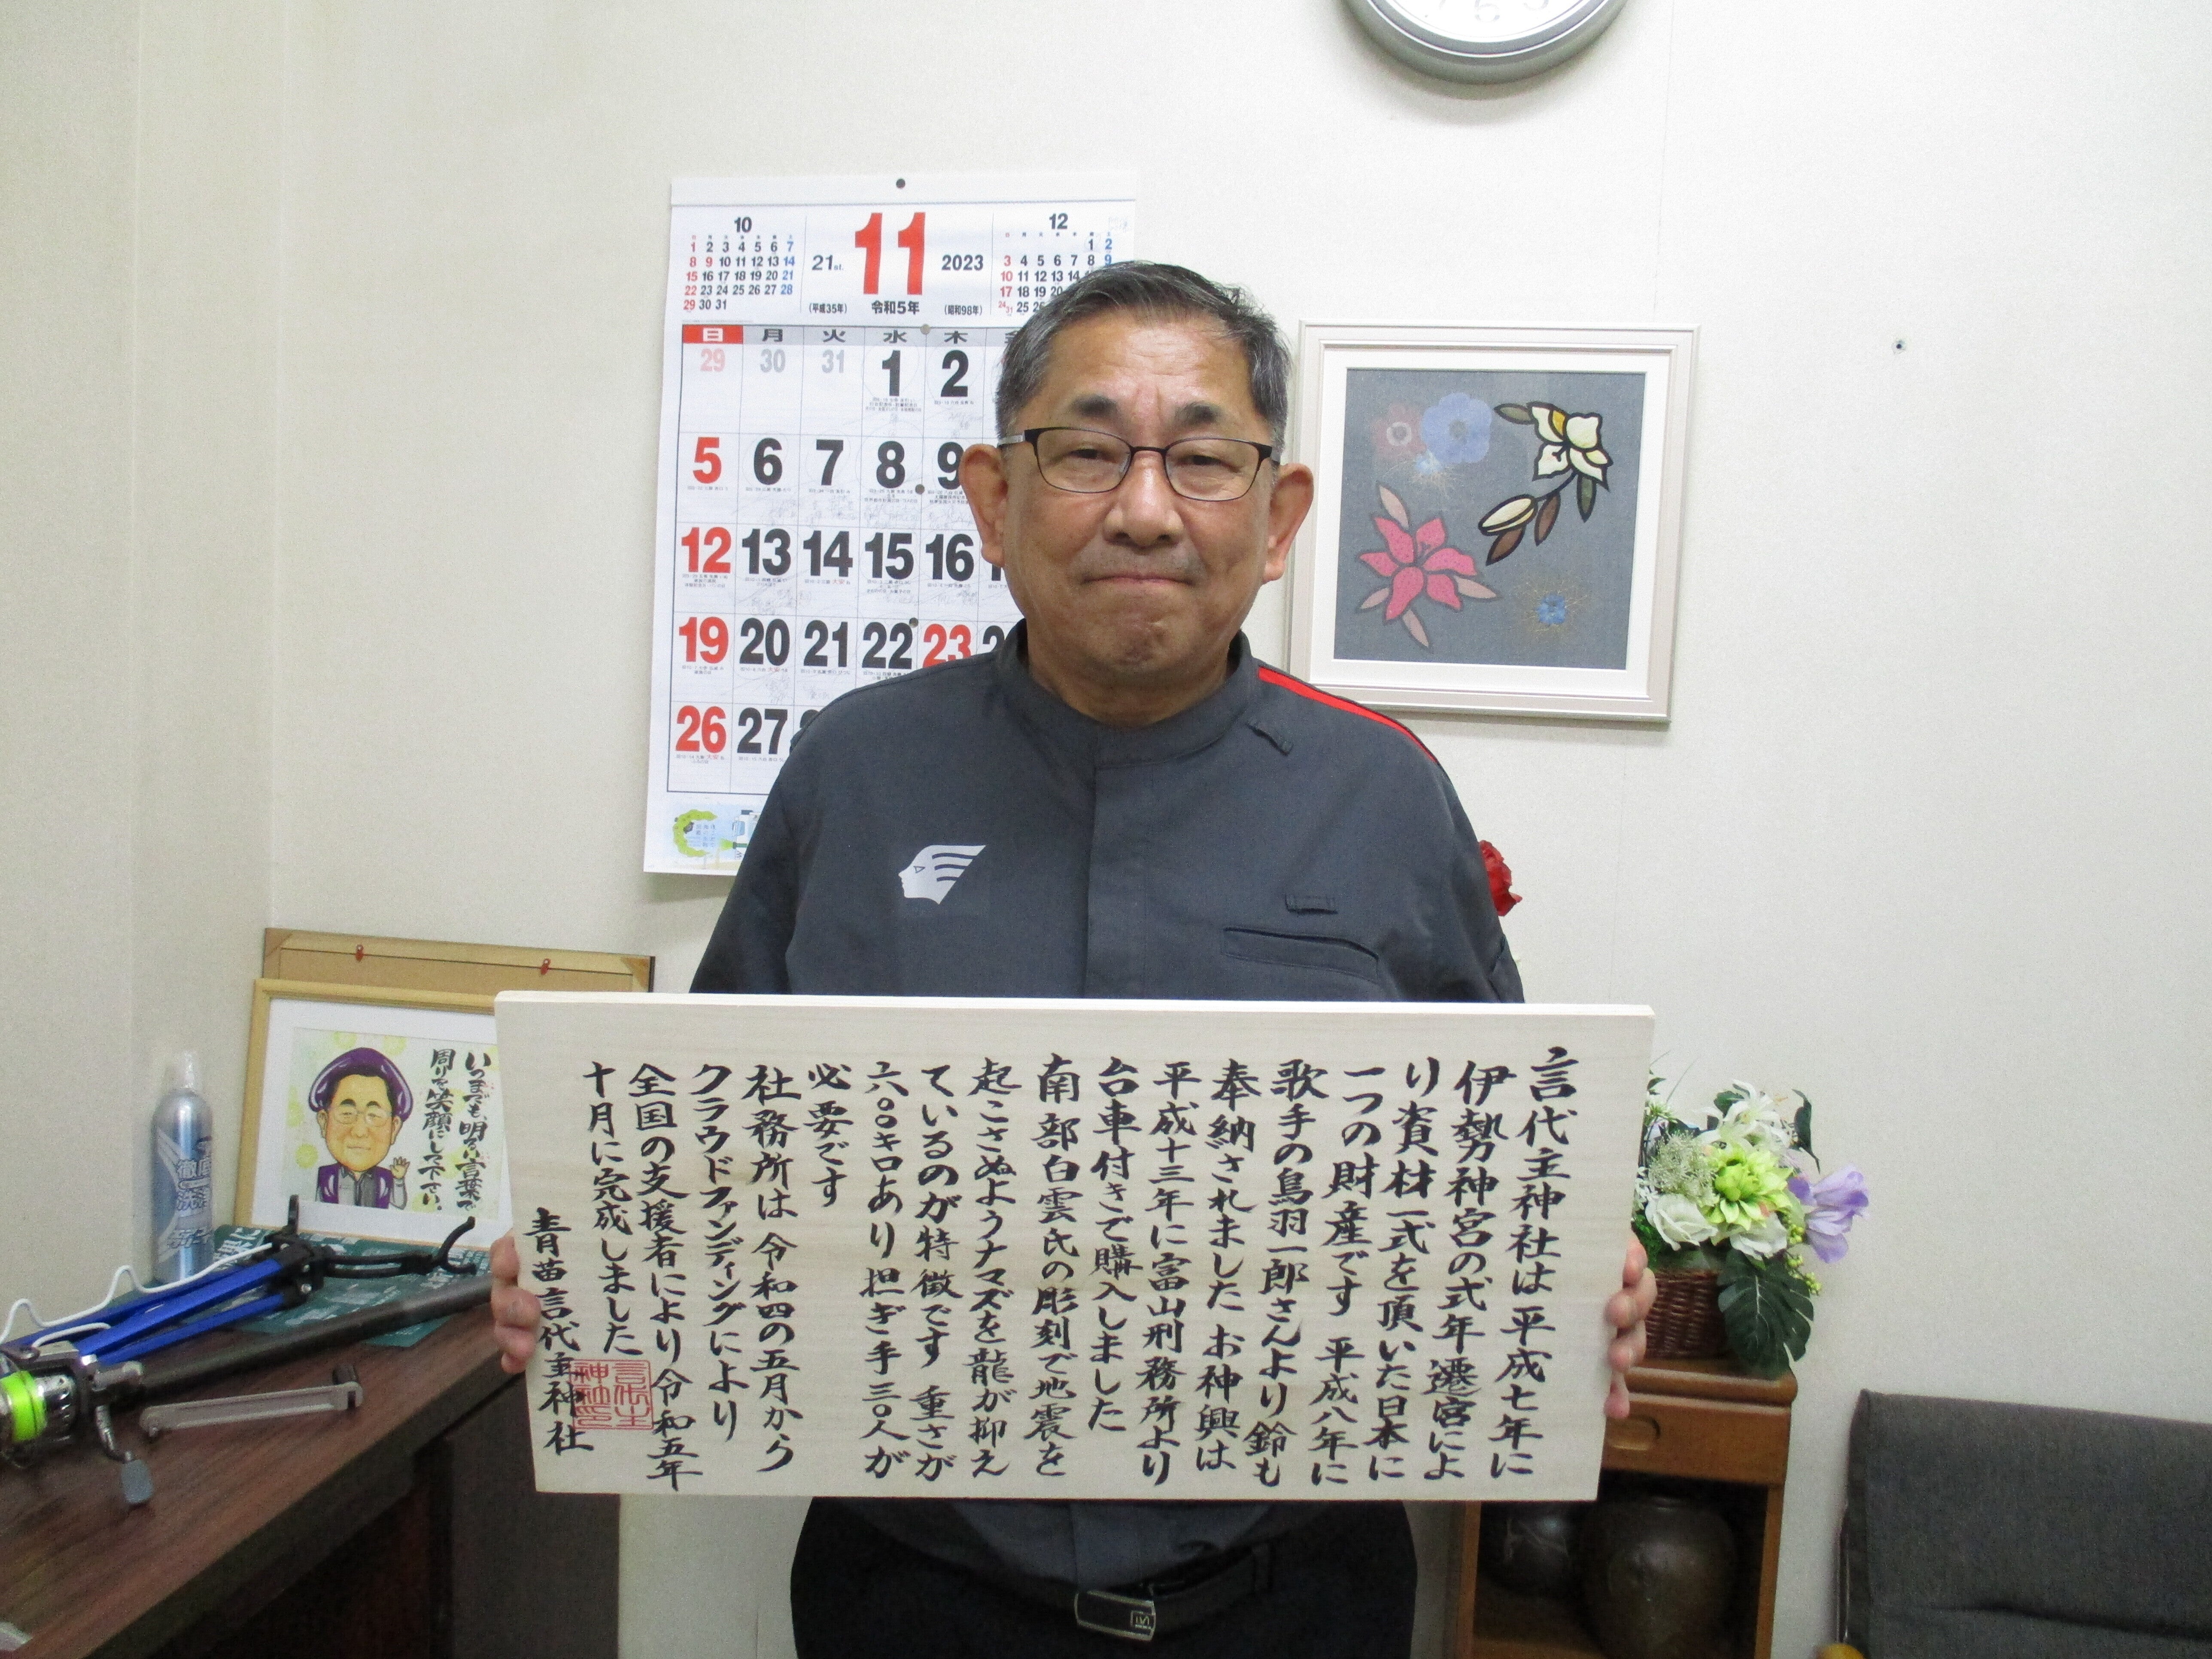 10
11
12
21st.
2023
(平成35年)
令和5年
(昭和98年)
1 2 3 4 5 6 7
8 9 10 11 12 13 14
15 16 17 18 19 20 21
22 23 24 25 26 27 28
29 30 31
1 2
3 4 5 6 7 8 9
10 11 12 13 14
17 18 19 20
24/31 25 26
日 月 火 水 木 金
29 30 31 1 2
5 6 7 8 9
12 13 14 15 16
19 20 21 22 23
26 27
いつまでも、明るい言葉で
周りを笑顔にして下さい。
徹底
洗浄
言代主神社は平成七年に
伊勢神宮の式年遷宮によ
り資材一式を頂いた日本に
一つの財産です 平成八年に
歌手の鳥羽一郎さんより鈴も
奉納されました お神輿は
平成十三年に富山刑務所より
台車付きで購入しました
南部白雲氏の彫刻で地震を
起こさぬようナマズを龍が抑え
ているのが特徴です 重さが
六〇〇キロあり担ぎ手三〇人が
必要です
社務所は令和四の五月から
クラウドファンディングにより
全国の支援者により令和五年
十月に完成しました
青苗言代主神社
言代主
神社印